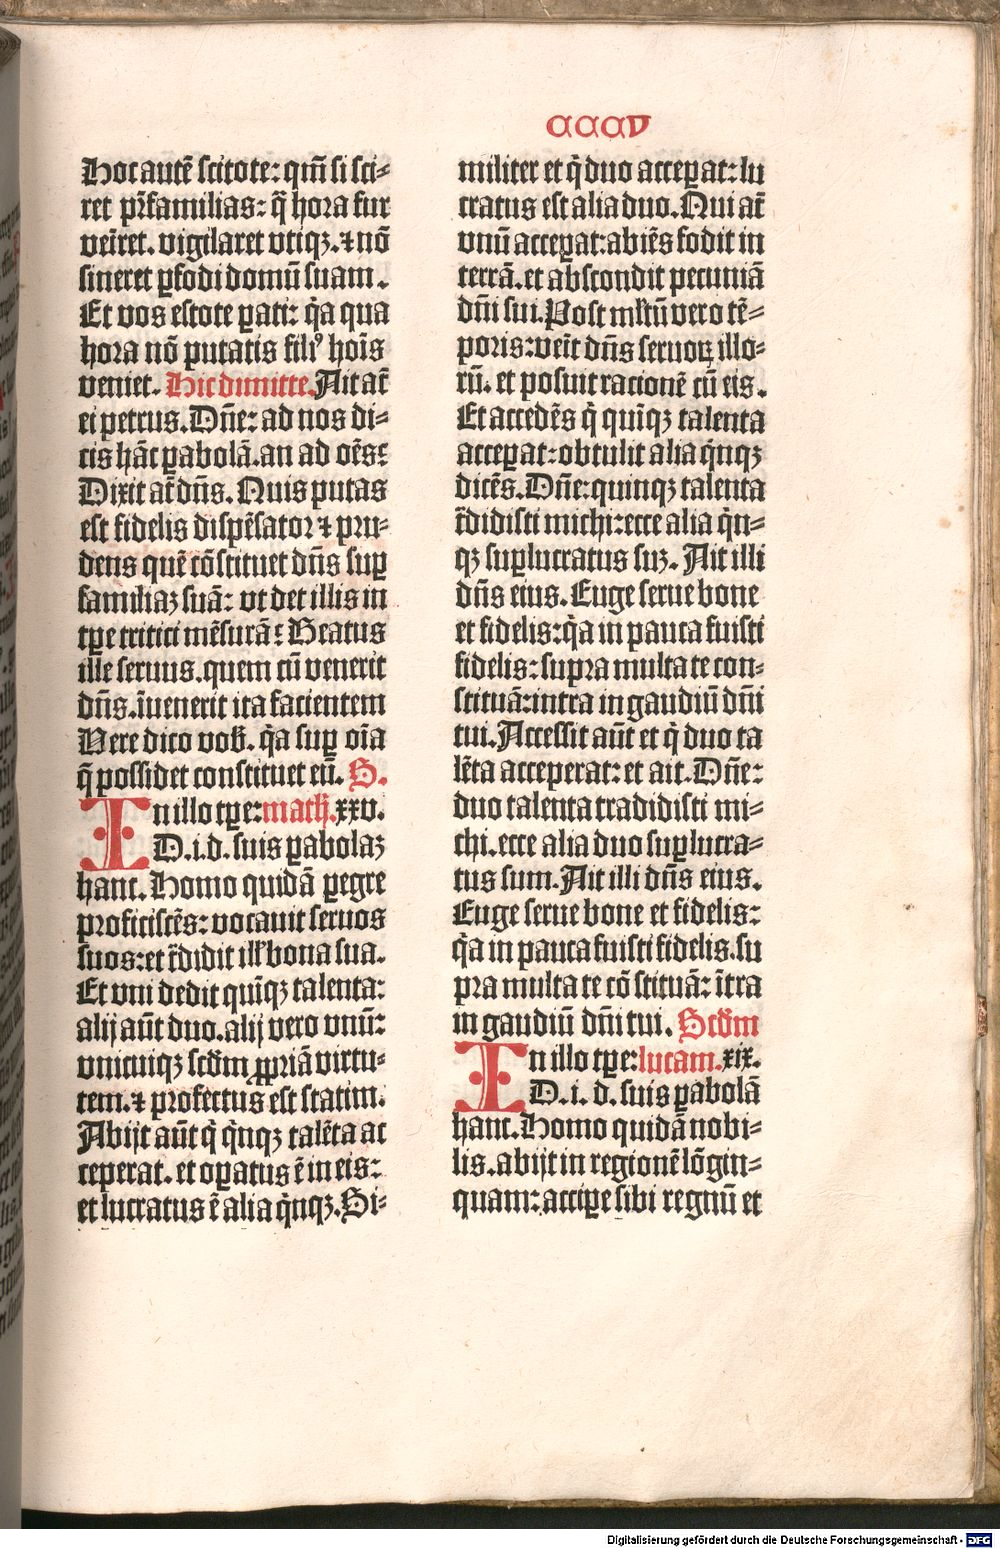 CCCCV
Hoc autē scitote: qm̄ si sci⸗
ret pr̄familias: q̄ hora fur
veīret. vigilaret vtiqꝫ. ⁊ nō
sineret ꝑfodi domū suam.
Et vos estote ꝑati: q̇a qua
hora nō putatis filiꝰ hoīs
veniet. Hic dimitte. Ait at̄
ei petrus. Dn̄e: ad nos di⸗
cis hāc ꝑabolā. an ad oēs:
Dixit at̄ dn̄s. Quis putas
est fidelis dispēsator ⁊ pru⸗
dens quē cōstituet dn̄s suꝑ
familiaꝫ suā: vt det illis in
tꝑe tritici mēsurā: Beatus
ille seruus. quem cū venerit
dn̄s. īuenerit ita facientem
Vere dico vob̄. q̇a suꝑ oīa
q̄ possidet constituet eū. S.
In illo tꝑe: math̄. xxv.
D. i. d. suis ꝑabolaꝫ
hanc. Homo quidā ꝑegre
proficiscēs: vocauit seruos
suos: et t̄didit ill̄ bona sua.
Et vni dedit quīqꝫ talenta:
alij aūt duo. alij vero vnū:
vnicuiqꝫ scd̄m ꝓpriā virtu⸗
tem. ⁊ profectus est statim.
Abijt aūt q̇ q̇nqꝫ talēta ac
ceperat. et oꝑatus ē in eis:
et lucratus ē alia q̇nqꝫ. Si⸗
militer et q̇ duo acceꝑat: lu
cratus est alia duo. Qui at̄
vnū acceꝑat: abiēs fodit in
terrā. et abscondit pecuniā
dn̄i sui. Post ml̄tū vero tē⸗
poris: veīt dn̄s seruoꝝ illo⸗
rū. et posuit racionē cū eis.
Et accedēs q̇ quīqꝫ talenta
acceꝑat: obtulit alia q̇nqꝫ
dicēs. Dn̄e: quinqꝫ talenta
t̄didisti michi: ecce alia q̇n⸗
qꝫ suꝑlucratus suꝫ. Ait illi
dn̄s eius. Euge serue bone
et fidelis: q̇a in pauca fuisti
fidelis: supra multa te con⸗
stituā: intra in gaudiū dn̄i
tui. Accessit aūt et q̇ duo ta
lēta acceperat: et ait. Dn̄e:
duo talenta tradidisti mi⸗
chi. ecce alia duo suꝑlucra⸗
tus sum. Ait illi dn̄s eius.
Euge serue bone et fidelis:
q̇a in pauca fuisti fidelis. su
pra multa te cōstituā: ītra
in gaudiū dn̄i tui. Scd̄m
In illo tꝑe: lucam. xix.
D. i. d. suis ꝑabolā
hanc. Homo quidā nobi⸗
lis. abijt in regionē lōgin⸗
quam: acciꝑe sibi regnū et
Digitalisierung gefördert durch die Deutsche Forschungsgemeinschaft - DFG